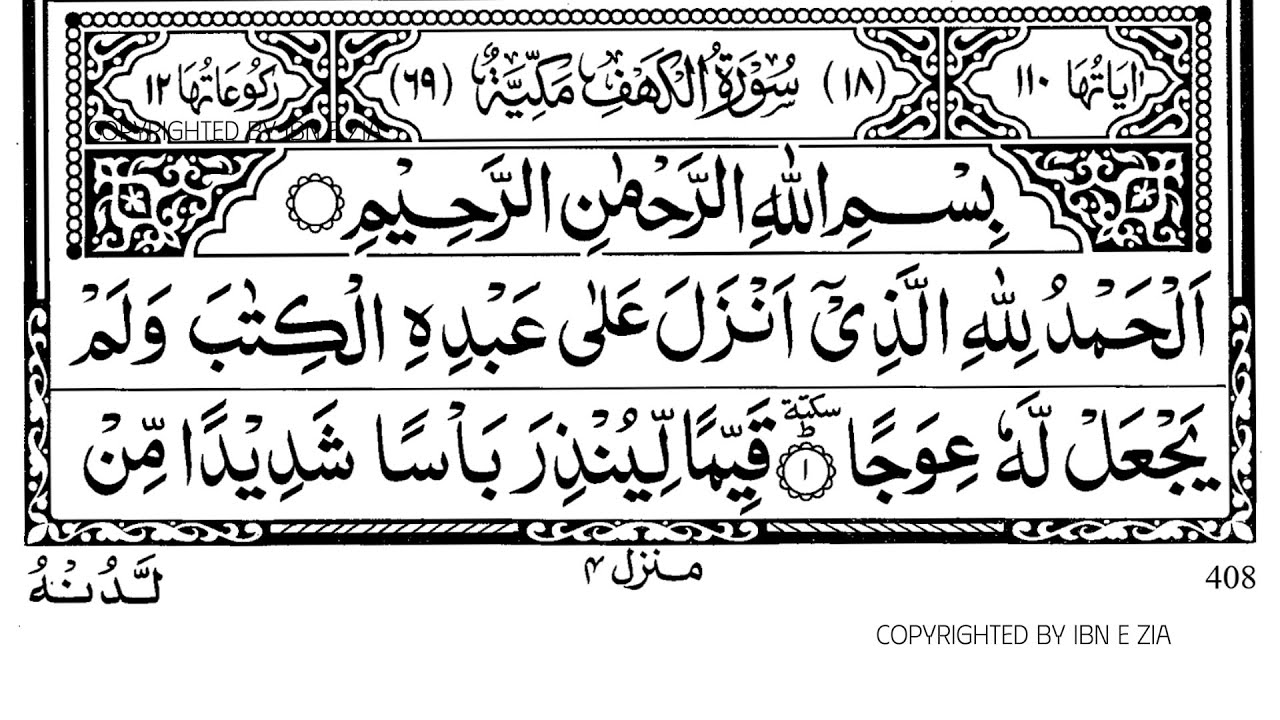 اٰيَاتُهَا ١١٠ (١٨) سُوْرَةُ الْكَهْفِ مَكِّيَّةٌ (٦٩) رُكُوْعَاتُهَا ١٢
COPYRIGHTED BY IBN E ZIA
بِسْمِ اللّٰهِ الرَّحْمٰنِ الرَّحِيْمِ
اَلْحَمْدُ لِلّٰهِ الَّذِىْۤ اَنْزَلَ عَلٰى عَبْدِهِ الْكِتٰبَ وَلَمْ
يَجْعَلْ لَّهٗ عِوَجًا ؕ سكتة ١ قَيِّمًا لِّيُنْذِرَ بَاْسًا شَدِيْدًا مِّنْ
لَّدُنْهُ منزل ۴ 408
COPYRIGHTED BY IBN E ZIA